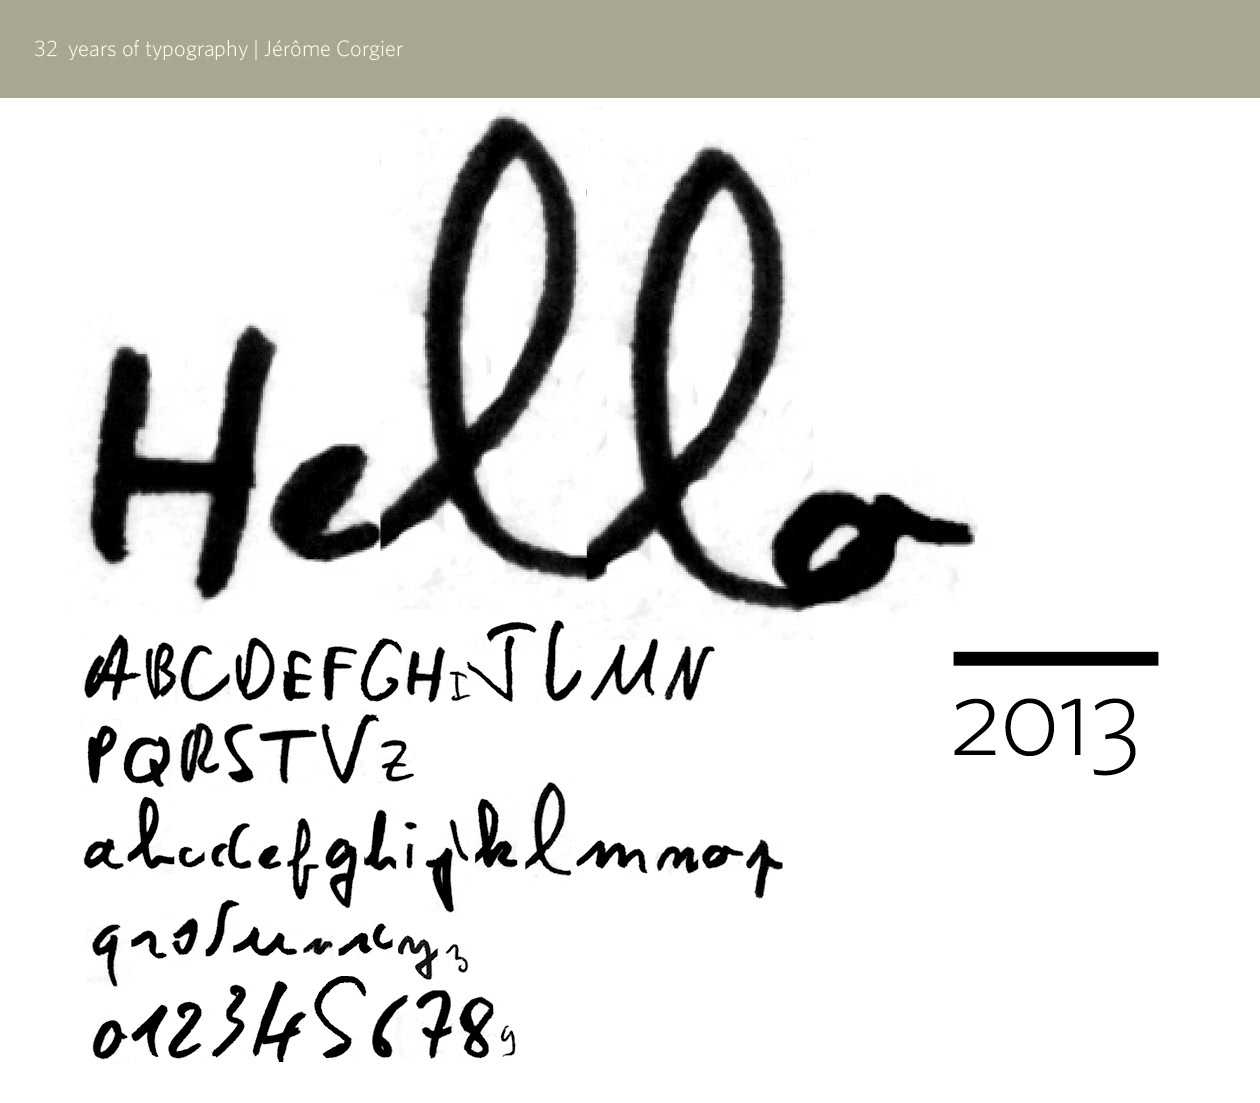 32 years of typography | Jérôme Corgier
Hello
ABCDEFGHIJLMN
2013
PQRSTVZ
abcdefghijklmnop
qrstuvwxyz
0123456789